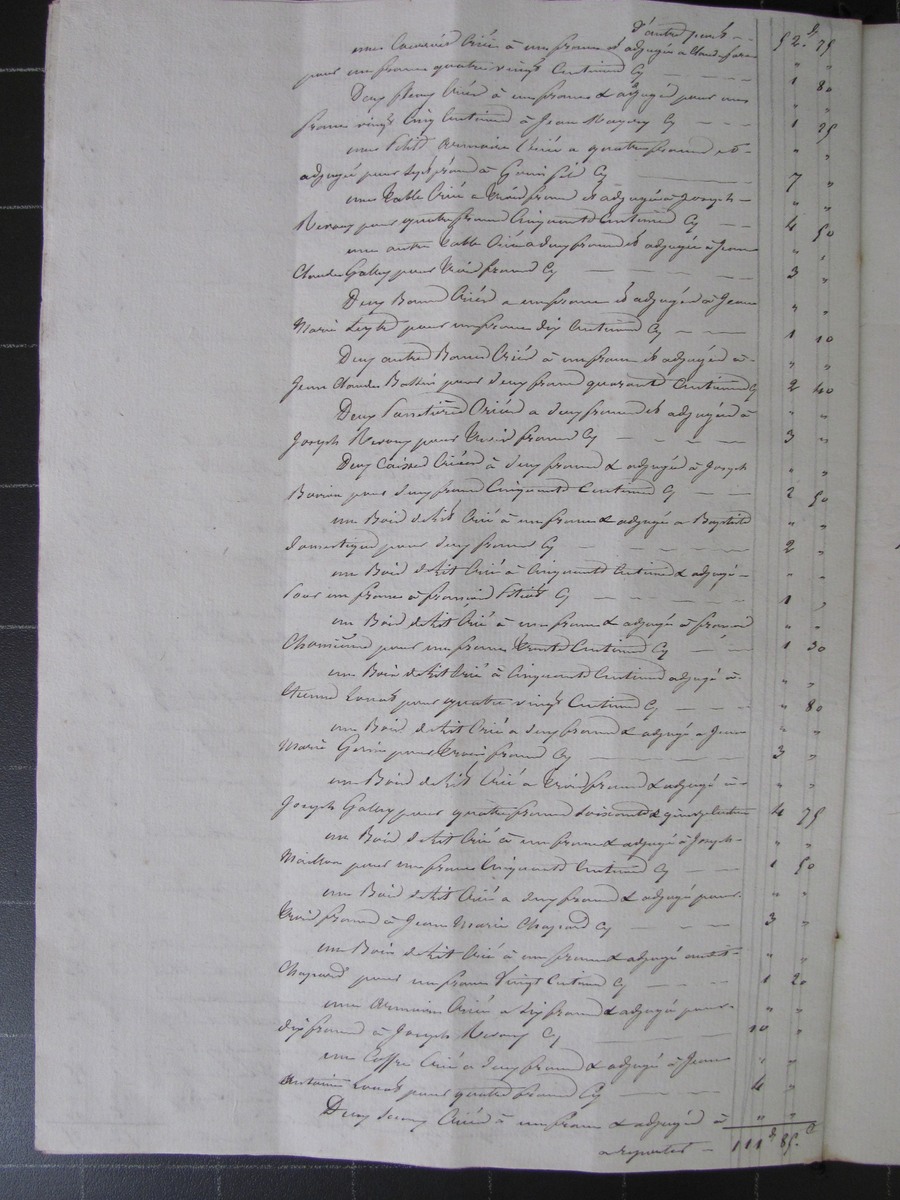 d'autre part - - 52.f 75
une Cuvier Criée à un franc et adjugée a Claude
pour un franc quatre vingt Centimes Cy - - - 1 80
Deux Criés à un franc & adjugé pour un
franc vingt Cinq Centimes à Jean Cy - - - 1 25
une Petite Armoire Criée a quatre franc et
adjugée pour Sept franc à Cy 7 "
une Table Criée a trois franc et adjugée à Joseph
pour quatre franc Cinquante Centimes Cy - - 4 50
une autre Table Criée a deux franc et adjugée à Jean
Claude Gallay pour trois franc Cy - - - 3 "
Deux Bancs Criés a un franc et adjugés à Jean
Marie pour un franc dix Centimes Cy - - - 1 10
Deux autres Bancs Criés à un franc et adjugés à
Jean Claude pour deux franc quarante Centimes Cy 2 40
Deux Criées a deux franc et adjugées à
Joseph pour trois franc Cy - - - 3 "
Deux Caisses Criées à deux franc & adjugées à Joseph
pour deux franc Cinquante Centimes Cy - - 2 50
un Bois de Lit Crié à un franc & adjugé a Baptiste
domestique pour deux franc Cy - - - 2 "
un Bois de Lit Crié à Cinquante Centimes & adjugé
pour un franc à François Cy - - - 1 "
un Bois de Lit Crié à un franc & adjugé à François
pour un franc trente Centimes Cy - - 1 30
un Bois de Lit Crié à Cinquante Centimes adjugé à
Etienne pour quatre vingt Centimes Cy - - - " 80
un Bois de Lit Crié a deux franc & adjugé a Jean
Marie pour trois franc Cy 3 "
un Bois de Lit Crié a trois franc & adjugé à
Joseph Gallay pour quatre franc soixante & quinze Centimes 4 75
un Bois de Lit Crié à un franc & adjugé à Joseph
pour un franc Cinquante Centimes Cy - - 1 50
un Bois de Lit Crié a deux franc & adjugé pour
trois franc à Jean Marie Chapard Cy - - - 3 "
un Bois de Lit Crié à un franc & adjugé audit
Chapard pour un franc vingt Centimes Cy - - - 1 20
une Armoire Criée a Six franc & adjugée pour
dix franc à Joseph Cy 10 "
un Coffre Crié a deux franc & adjugé à Jean
Antoine pour quatre franc Cy - - - 4 "
Deux Criés à un franc & adjugés à
a reporter - 111f 85.c